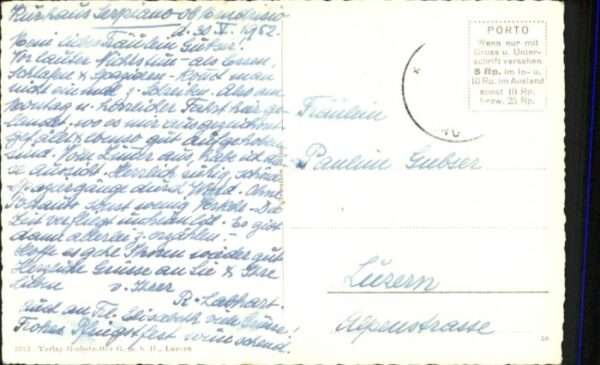 Kurhaus Serpiano ob Mendrisio
d. 30. V. 1952.
Mein liebes Fräulein Gubser!
Vor lauter Nichtstun - als Essen,
Schlafen & Spazieren - kommt man
nicht einmal z. Schreiben. Also am
Montag n. herrlicher Fahrt hier ge-
landet, wo es mir ausgezeichnet
gefällt & ebenso gut aufgehoben
sind. Vom Zimmer aus, habe ich
Aussicht. Herrlich ruhig, schöne
Spaziergänge durch Wald. Ohne
sonst wenig Verkehr. Die
Zeit verfliegt Es gibt
dann allerlei z. erzählen. -
Hoffe es gehe Ihnen wieder gut
Herzliche Grüsse an Sie & Ihre
Lieben v. Ihrer
R. Labhart.
Auch an Frl. Elisabeth viele Grüsse!
Frohes Pfingstfest wünschend.
PORTO
Wenn nur mit
Gruss u. Unter-
schrift versehen
5 Rp. im In- u.
10 Rp. im Ausland
sonst 10 Rp.
bezw. 25 Rp.
Fräulein
Pauline Gubser
Luzern
Alpenstrasse
Verlag G. m. b. H., Luzern